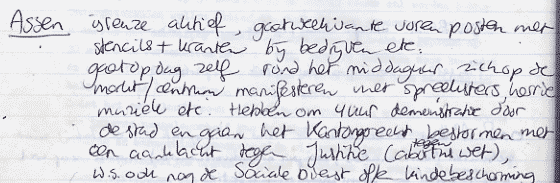 Assen ijreuze aktief, gaat weekivante voren posten met
stencils + kranten bij bedrijven etc.
gaat op dag zelf rond het middaguur zich op de
markt/centrum manifesteren met spreeksters horrie
muziek etc. Hebben om 4 uur demonstratie door
de stad en gaan het Kantongerecht bestormen met
een aanklacht tegen Justitie (abortus wet),
w.s. ook nog de Sociale Dienst ofk kindebescherming